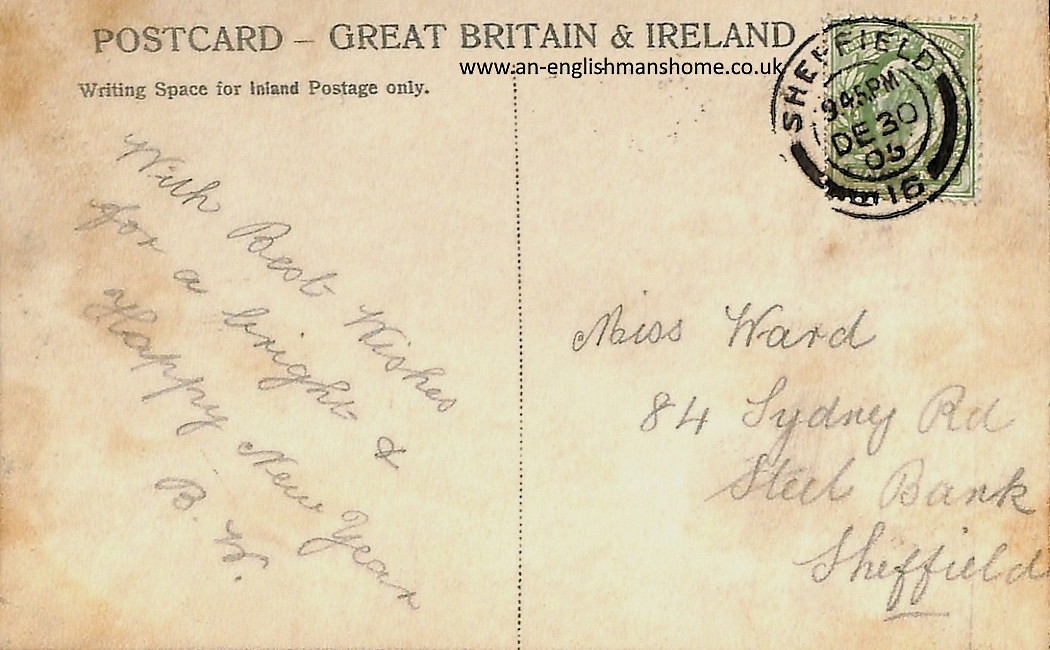 POSTCARD – GREAT BRITAIN & IRELAND
www.an-englishmanshome.co.uk
Writing Space for Inland Postage only.
SHEFFIELD
9.45PM
DE 30
05
16
With Best Wishes
for a bright &
Happy New Year
B. W.
Miss Ward
84 Sydney Rd
Steel Bank
Sheffield